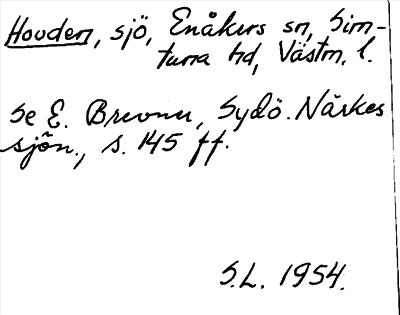 Hovden, sjö, Enåkers sn, Sim-
tuna hd, Västm. l.
Se E. Brevner, Sydö. Närkes
sjön., s. 145 ff.
S.L. 1954.